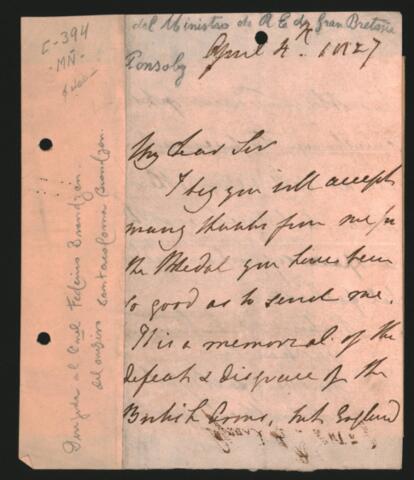 C-394
-MÑ-
del Ministro de R E de Gran Bretaña
Ponsoby
April 4th. 1827
My Dear Sir
I beg you will accept
many thanks from me for
the Medal you have been
so good as to send me.
It is a memorial of the
defeat & disgrace of the
British Arms, but England
Dirigida al Cnel Federico Brandzen.
del archivo Santa Coloma Brandzen.